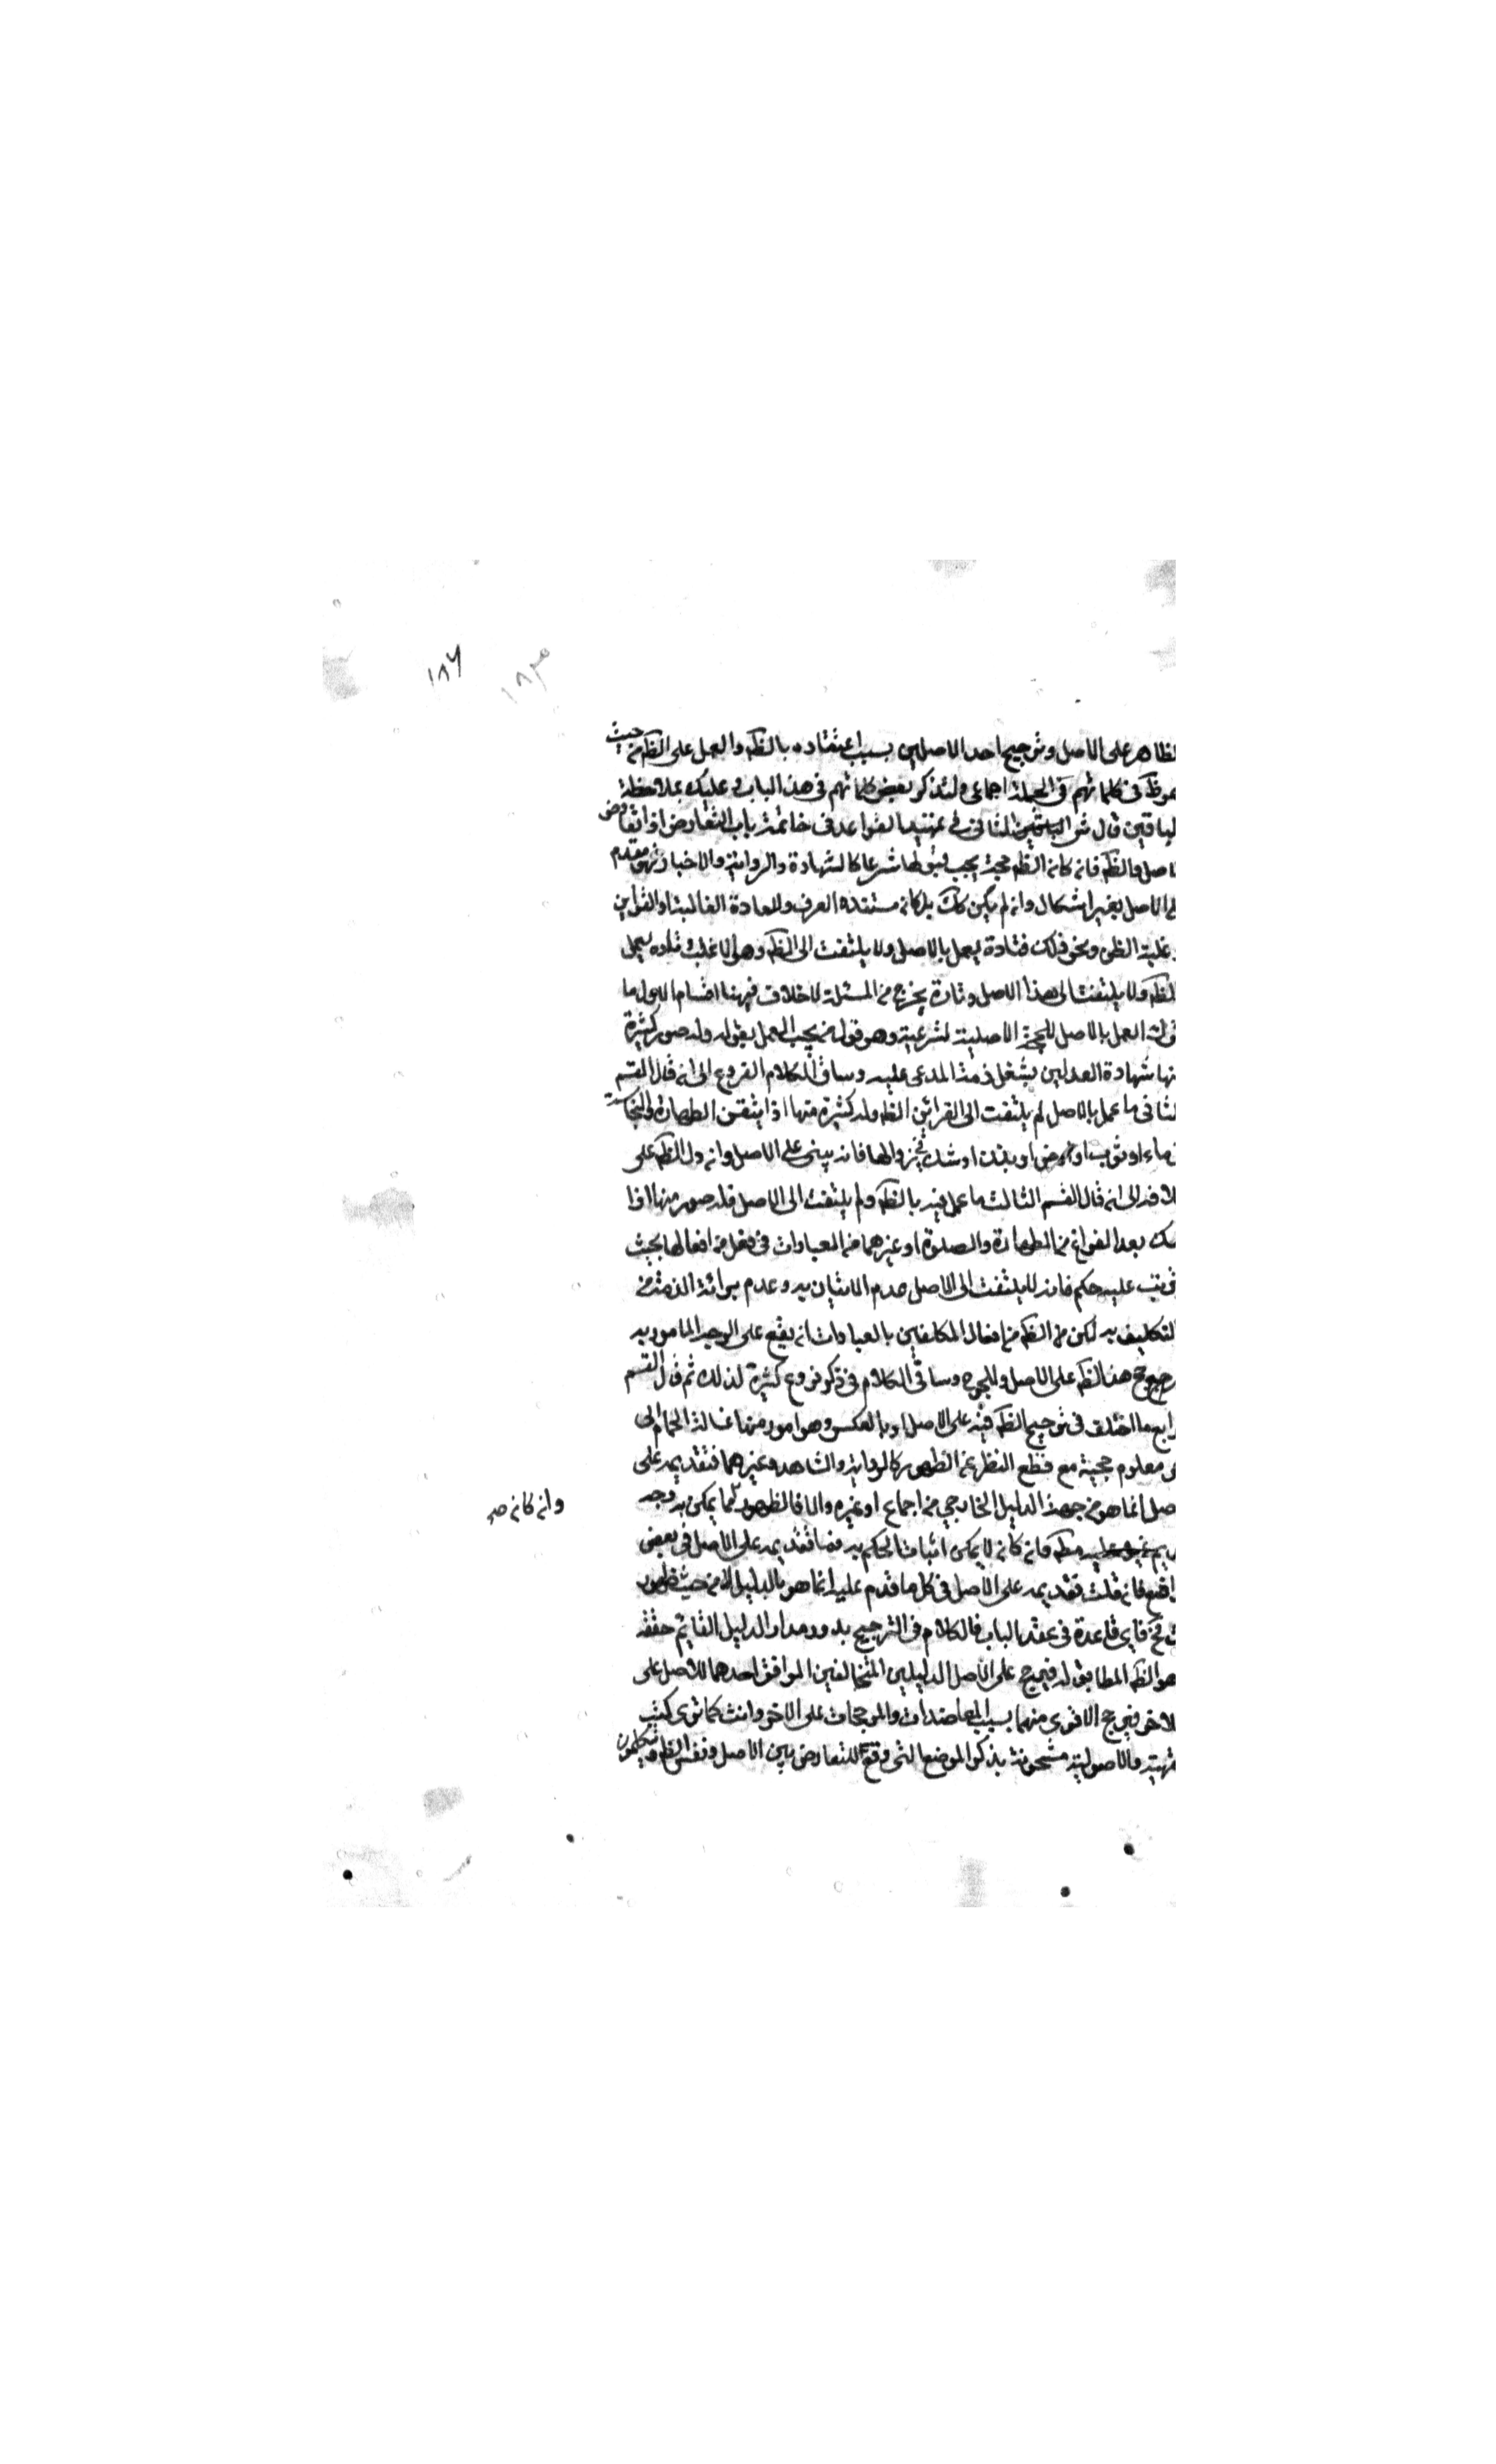 ١٨٤
١٨٣
لظاهر على الاصل وترجيح احد الاصلين بسبب اعتضاده بالظه والعمل على الظه من حيث
هو ظه في كلماتهم في الجملة اجماعي ولنذكر بعض كلماتهم في هذا الباب وعليك بملاحظة
لباقين قال ش الثاني في تمهيد القواعد في خاتمة باب التعارض اذا تعارض
لاصل والظه فانه كانه الظه حجة يجب قبولها شرعا كالشهادة والرواية والاخبار فهو مقدم
لى الاصل بغير اشكال وانه لم يكن كك بل كانه مستنده العرف والعادة الغالبة او القراين
و غلبة الظن ونحو ذلك فتارة يعمل بالاصل ولا يلتفت الى الظه وهو الاغلب وتارة يعمل
لظه ولا يلتفت الى هذا الاصل وتارة يخرج في المسئلة لاخلاف فيهنا اقسام الاول ما
ترك العمل بالاصل للحجة الاصلية لشرعية وهو قول من يجب العمل بقوله وله صور كثيرة
نها شهادة العدلين بشغل ذمة المدعى عليه وساق الكلام الفروع الى انه قال القسم
لثاني ما عمل بالاصل لم يلتفت الى القرائن الظه وله كثيرة منها اذا تيقن الطهارة والنجاسة
ى ماء او ثوب او ارض او بدن او شك في زوالها فانه يبنى على الاصل وانه دل الظه على
لافه الى انه قال القسم الثالث ما عمل فيه بالظه ولم يلتفت الى الاصل فله صور منها اذا
شك بعد الفراغ من الطهارة والصلوة او غيرهما من العبادات في فعل من افعالها بحيث
ترتب عليه حكم فانه لا يلتفت الى الاصل عدم الاتيان به وعدم برائة الذمة من
لتكليف به لكن من الظه من افعال المكلفين بالعبادات انه يقع على الوجه المامور به
رجح هذا الظه على الاصل وللحرج وساق الكلام في ذكر فروع كثيرة لذلك ثم قال القسم
رابع ما اختلف في ترجيح الظه فيه على الاصل او بالعكس وهو امور منها غسالة الحمام الى
معلوم حجية مع قطع النظر عن الظهور كالرواية والشاهد وغيرهما فتقديمه على
صل انما هو من جهة الدليل الخارجي من اجماع او غيره والا فالظهور مما يمكن به وجه
وانه كانه صح
ظه فانه كانه لا يمكن اثبات الحكم به فما تقديمه على الاصل في بعض
واضع فانه قلت تقديمه على الاصل في كل ما قدم عليه انما هو بالدليل لا من حيث ظهوره
فاي قاعدة في عقد الباب فالكلام في الترجيح يدور مدار الدليل القائم حقه
هو الظه المطابق له فيرجح على الاصل الدليلين المتخالفين الموافق احدهما للاصل على
لاخر فيرجح الاقوى منهما بسبب المعاضدات والمرجحات على الاخر وانت كما ترى كتب
قهية والاصولية مشحونة بذكر المواضع التي وقع التعارض بين الاصل ونفس الظه ويتكلمون